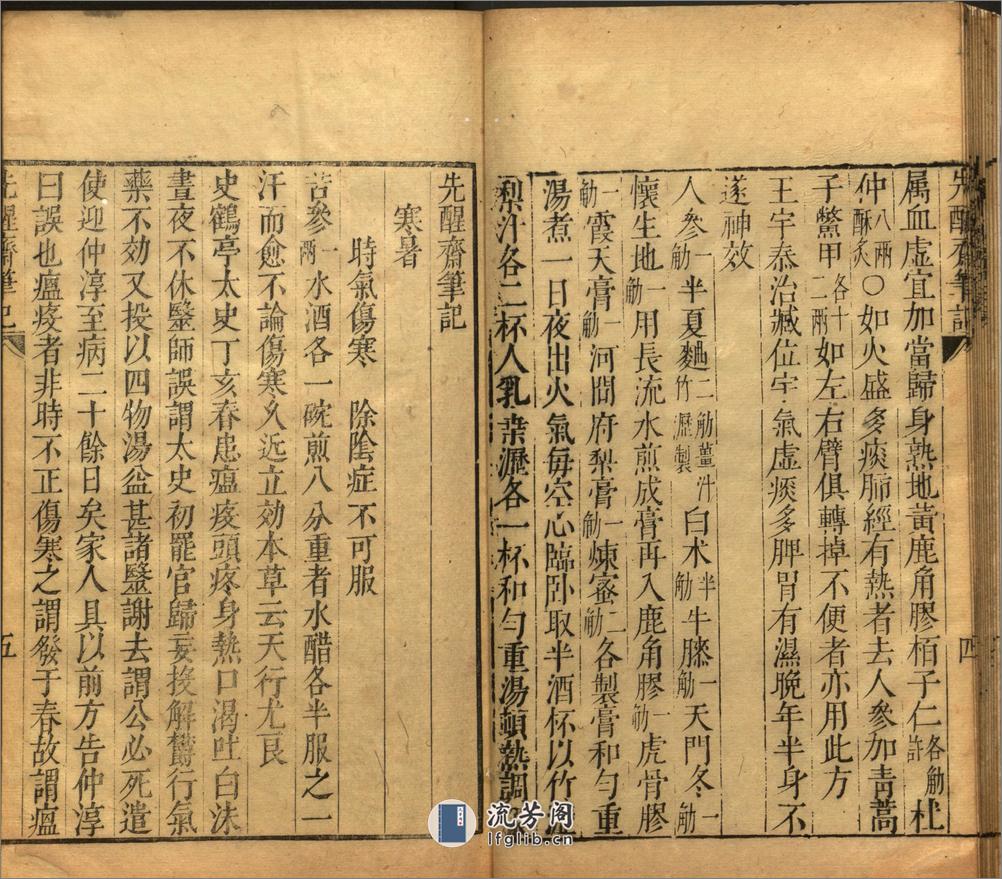 先醒齋筆記
四
属血虛宜加當歸身熟地黃鹿角膠栢子仁各觔許杜
仲八兩酥炙〇如火盛多痰肺經有熱者去人參加青蒿
子鱉甲各十二兩如左右臂俱轉掉不便者亦用此方
王宇泰治臧位宇氣虛痰多脾胃有濕晚年半身不
遂神效
人參一觔半夏麯二觔薑汁竹瀝製白术半觔牛膝一觔天門冬一觔
懷生地一觔用長流水煎成膏再入鹿角膠一觔虎骨膠
一觔霞天膏一觔河間府梨膏一觔煉蜜二觔各製膏和勻重
湯煮一日夜出火氣每空心臨卧取半酒杯以竹
梨汁各二杯人乳桒瀝各一杯和勻重湯頓熱調
先醒齋筆記
寒暑
時氣傷寒 除隂症不可服
苦參一兩水酒各一碗煎八分重者水醋各半服之一
汗而愈不論傷寒久近立効本草云天行尤良
史鶴亭太史丁亥春患瘟疫頭疼身熱口渴吐白沫
晝夜不休醫師誤謂太史初罷官歸妄投解欝行氣
藥不効又投以四物湯益甚諸醫謝去謂公必死遣
使迎仲淳至病二十餘日矣家人具以前方告仲淳
曰誤也瘟疫者非時不正傷寒之謂發于春故謂瘟
先醒齋筆記
五
流芳阁
lfglib.cn